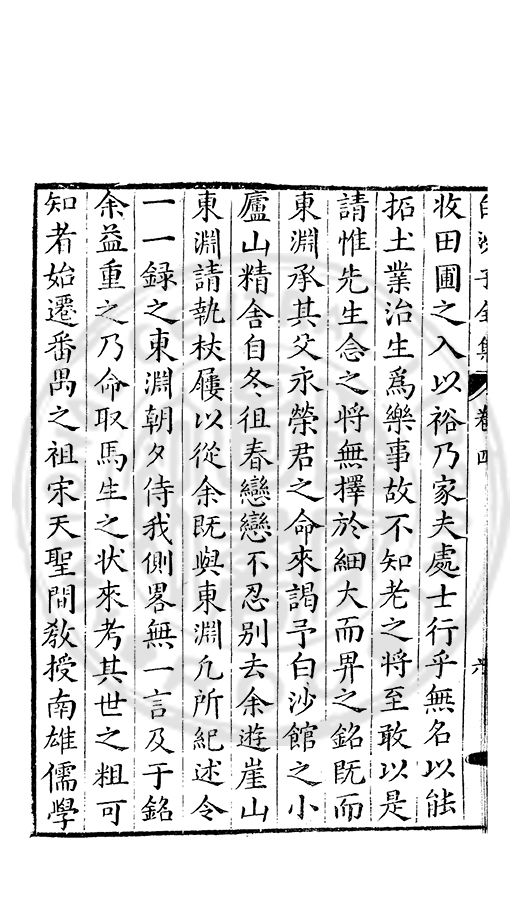 白沙子全集 卷四 六
收田圃之入以裕乃家夫處士行乎無名以能
拓土業治生爲樂事故不知老之將至敢以是
請惟先生念之將無擇於細大而畀之銘既而
東淵承其父永榮君之命來謁予白沙館之小
廬山精舍自冬徂春戀戀不忍别去余遊崖山
東淵請執杖屨以從余既與東淵凢所紀述令
一一録之東淵朝夕侍我側畧無一言及于銘
余益重之乃命取馬生之状來考其世之粗可
知者始遷番禺之祖宋天聖間敎授南雄儒學